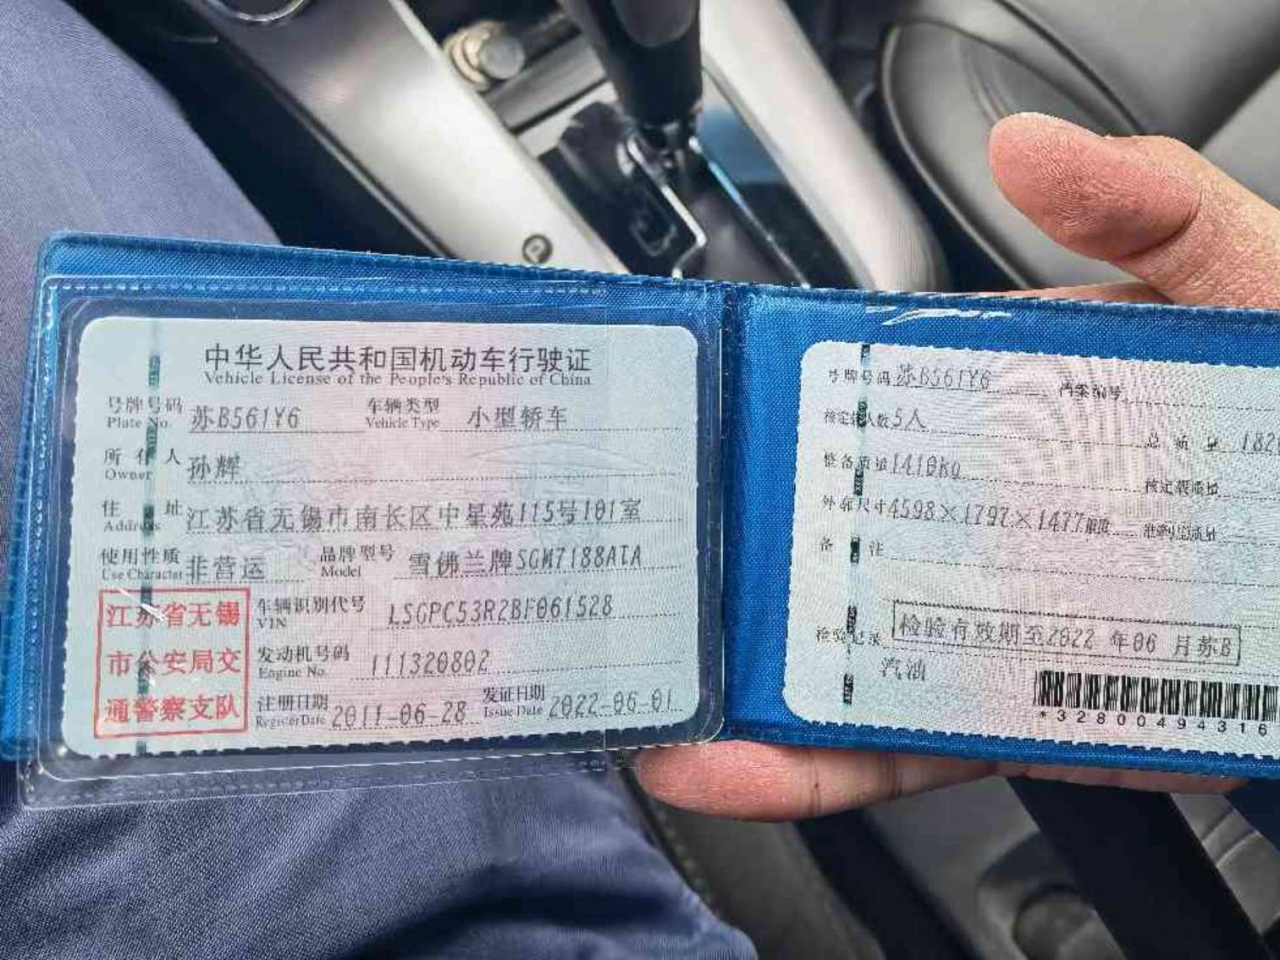 中华人民共和国机动车行驶证
Vehicle License of the People's Republic of China
号牌号码 苏B561Y6 车辆类型 小型轿车
Plate No. Vehicle Type
所有人 孙辉
Owner
住址 江苏省无锡市南长区中星苑115号101室
Address
使用性质 非营运 品牌型号 雪佛兰牌SGM7188ATA
Use Character Model
江苏省无锡
市公安局交
通警察支队
车辆识别代号 LSGPC53R2BF061528
VIN
发动机号码 111320802
Engine No.
注册日期 2011-06-28 发证日期 2022-06-01
Register Date Issue Date
号牌号码 苏B561Y6 档案编号
核定载人数 5人 总质量 182
整备质量 1410kg 核定载质量
外廓尺寸 4598×1797×1477 准牵引总质量
备注
检验记录 检验有效期至2022年06月苏B
汽油
*32800494316